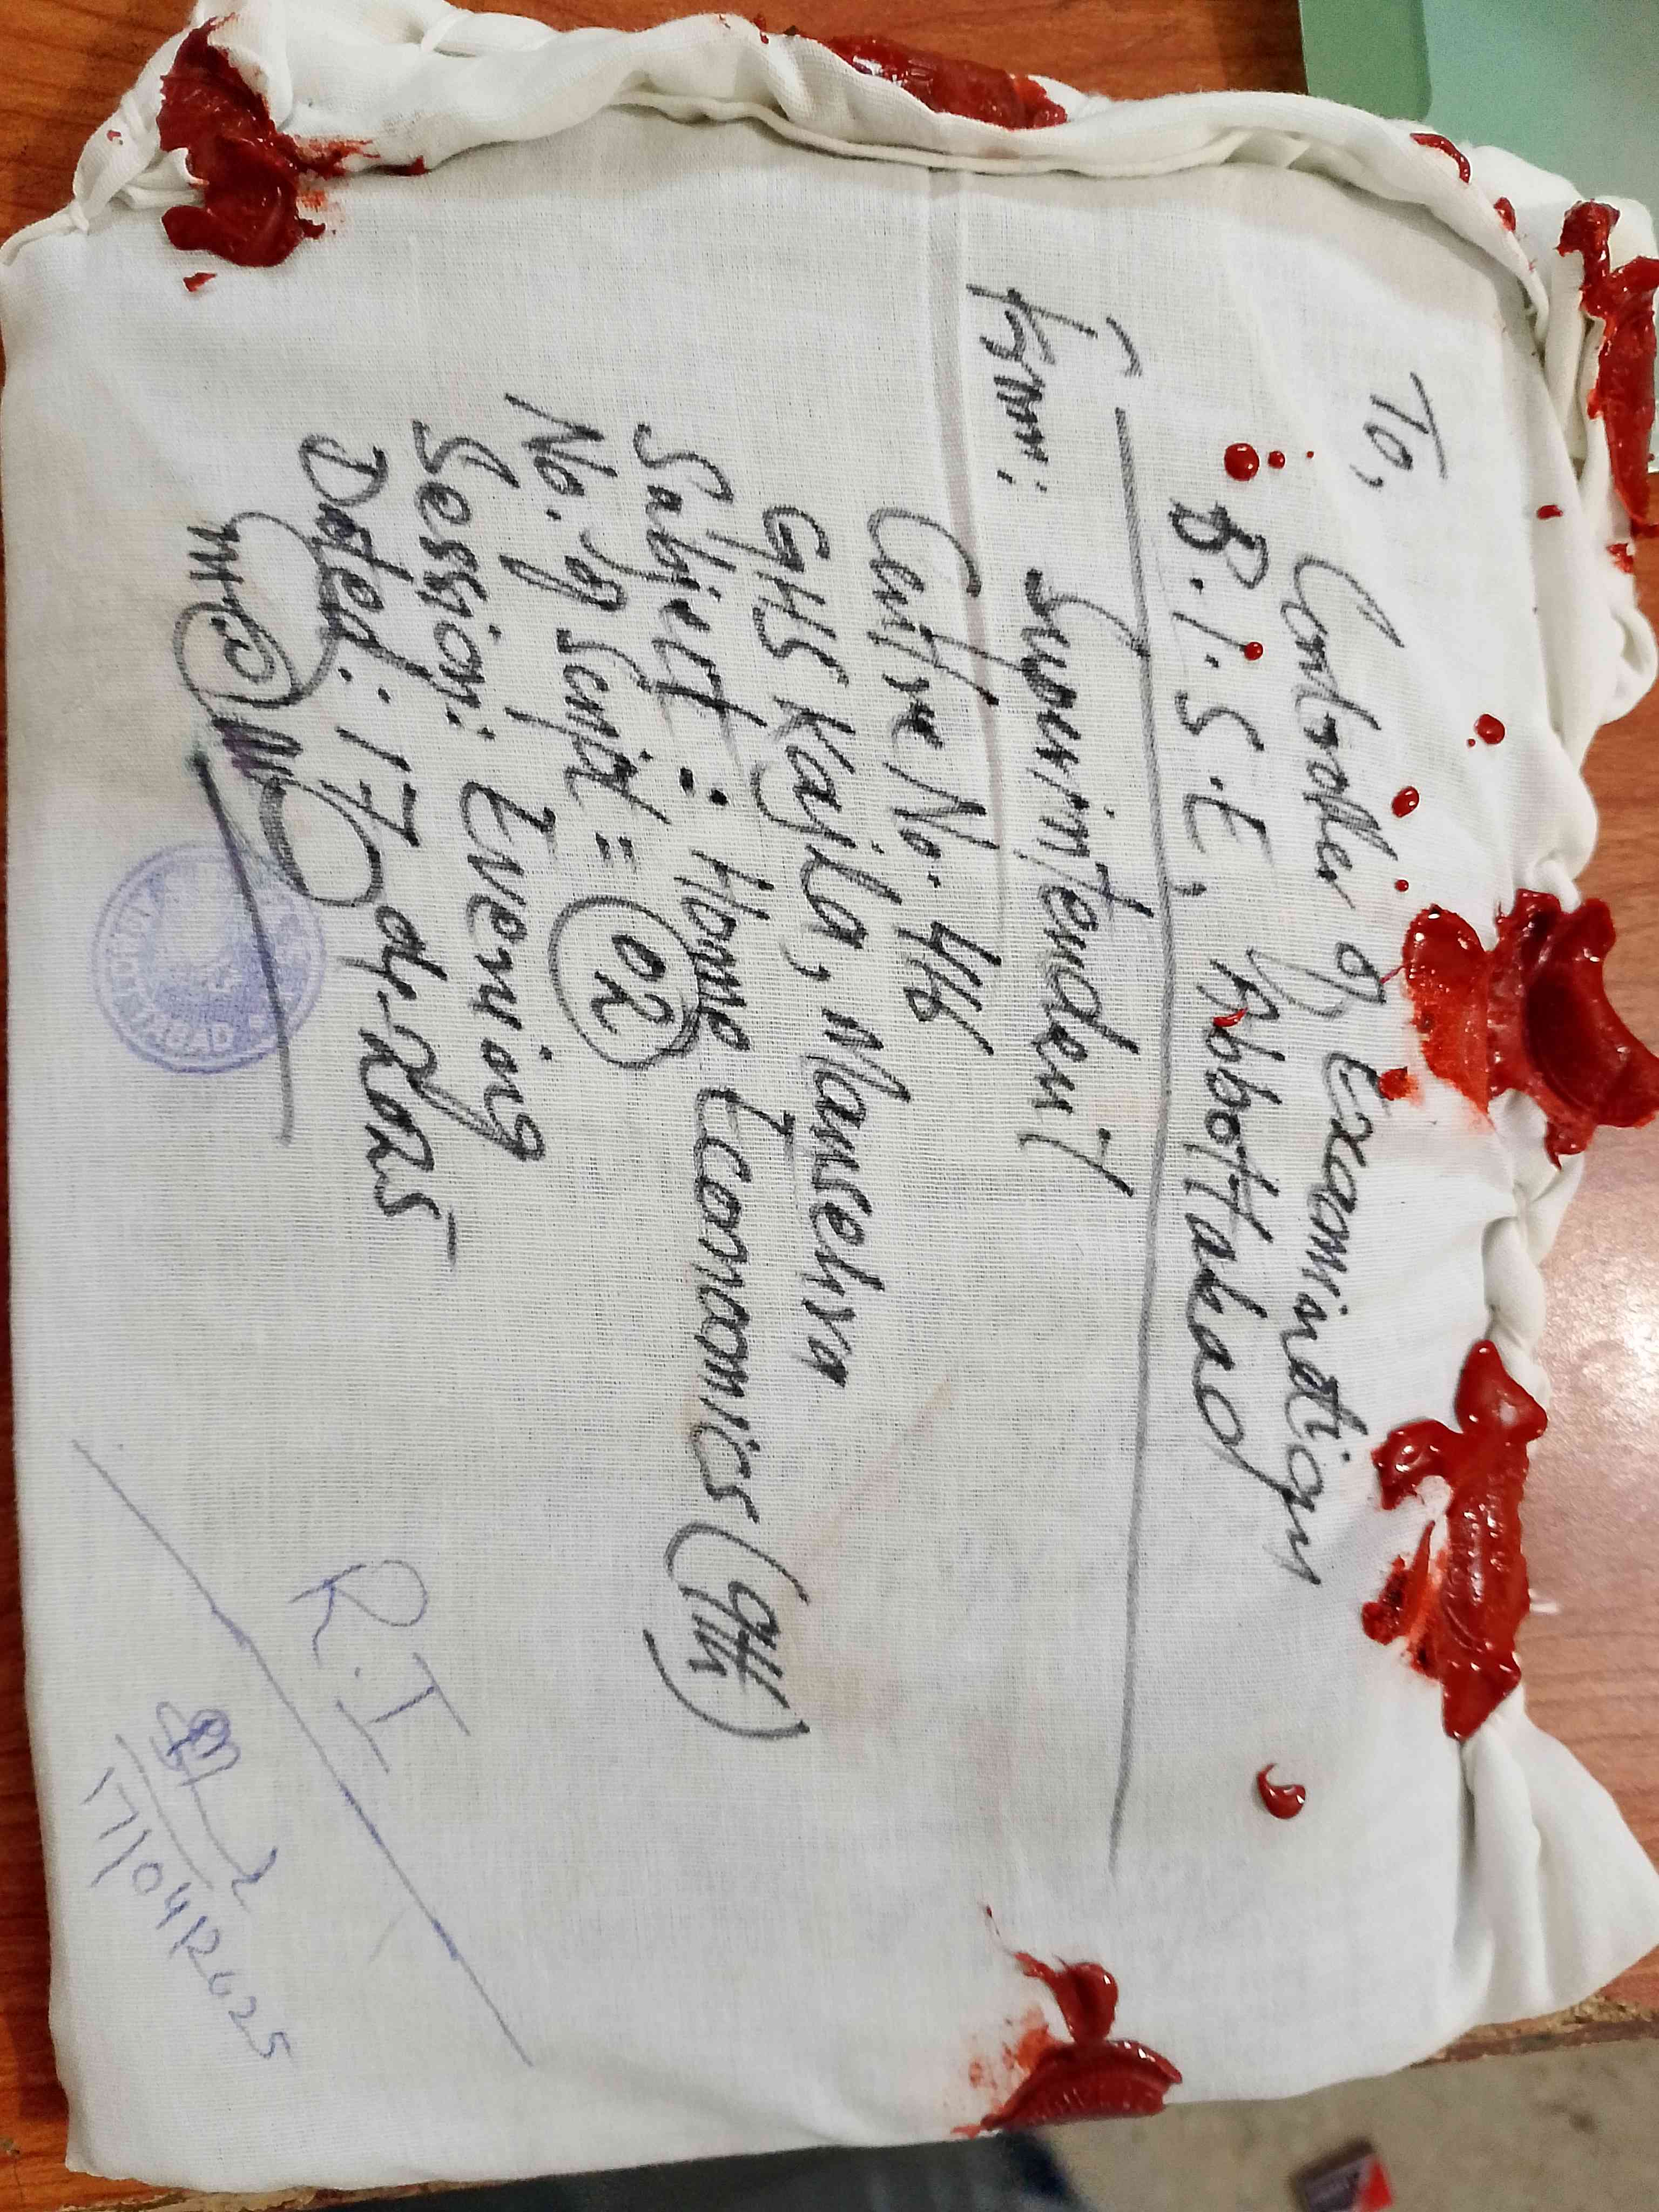 To,
Controller of Examinations
B.I.S.E, Abbottabad
From: Superintendent
Centre No. 446
GHS Kajla, Mansehra
Subject: Home Economics (9th)
No. of Script = 02
Session: Evening
Dated: 17-04-2025
R.I
17/04/2025